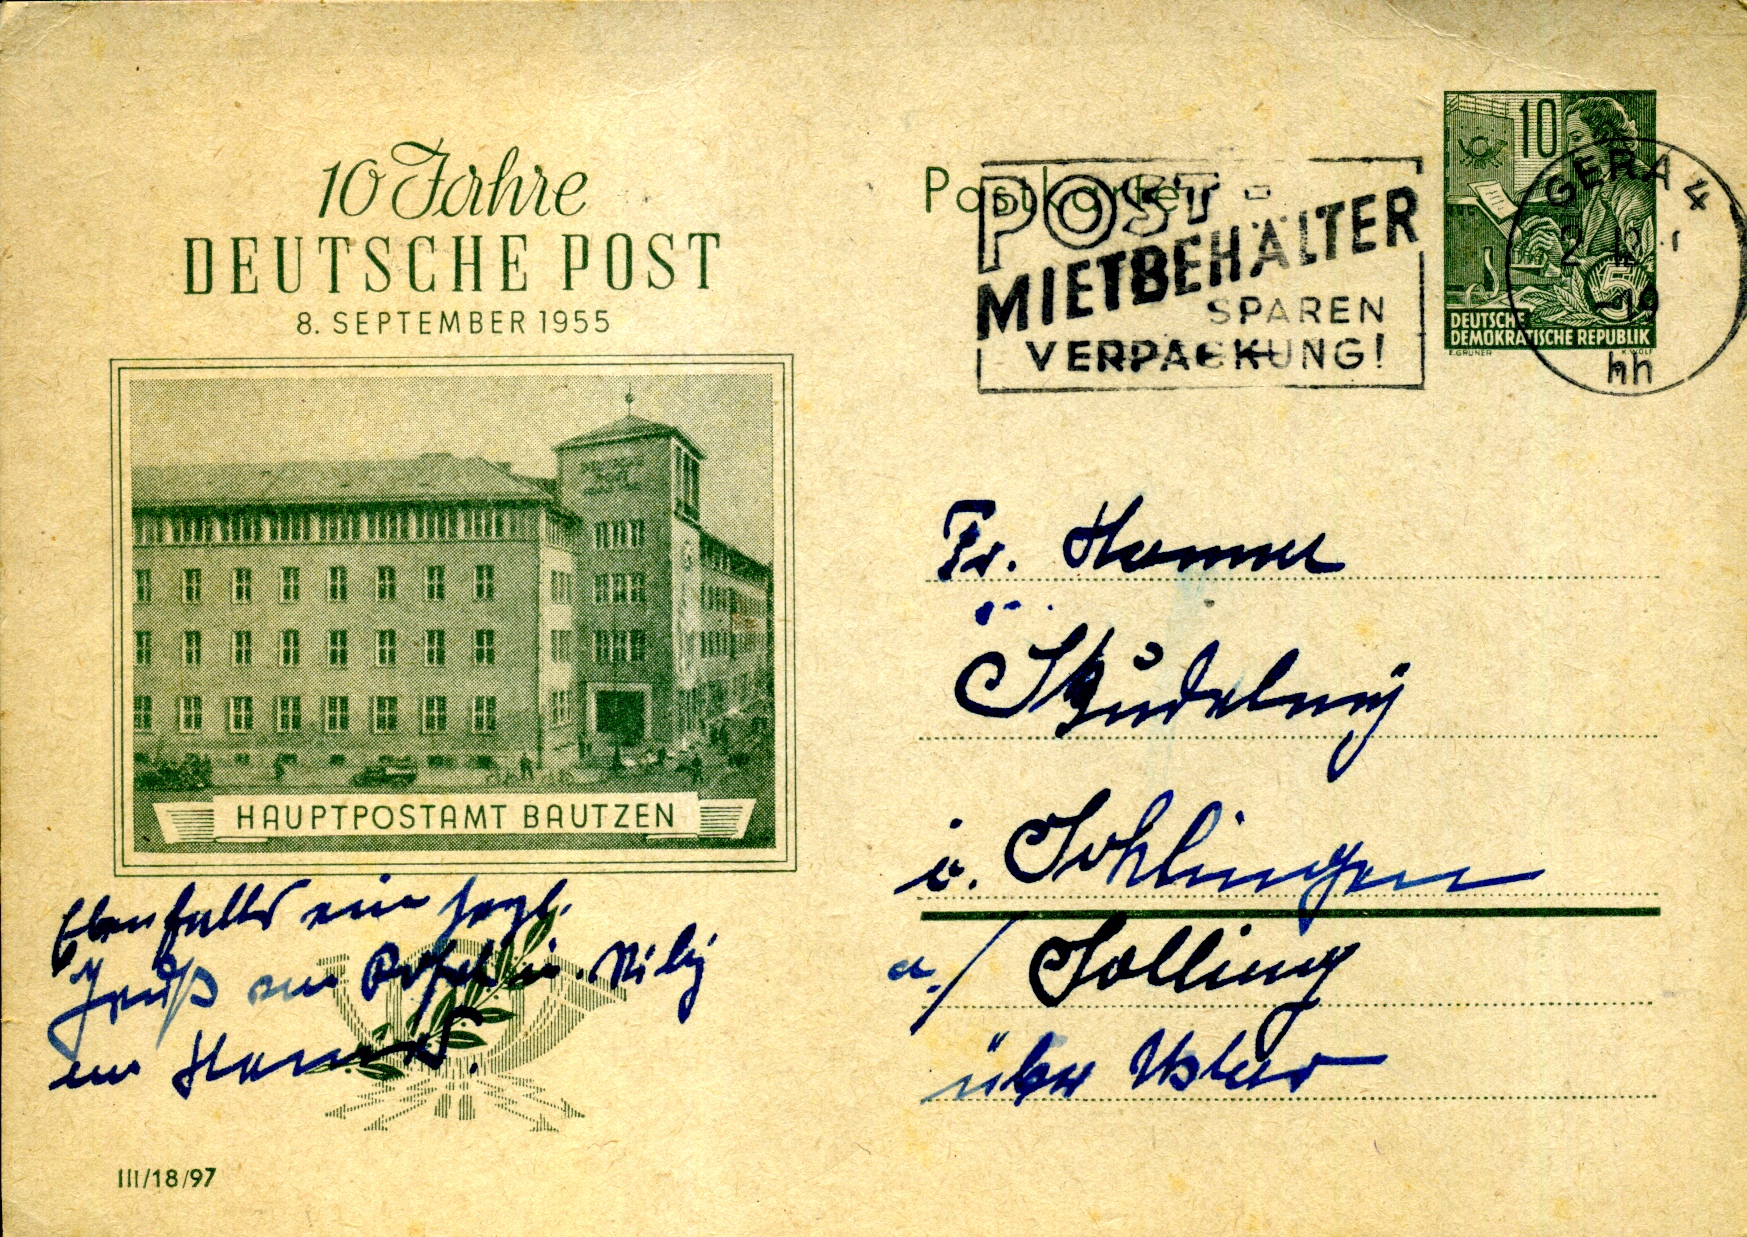 10 Jahre
DEUTSCHE POST
8. SEPTEMBER 1955
HAUPTPOSTAMT BAUTZEN
Ebenfalls ein herzl.
Gruß
III/18/97
Postkarte
POST-
MIETBEHÄLTER
SPAREN
VERPACKUNG!
10
5
DEUTSCHE
DEMOKRATISCHE REPUBLIK
E.GRUNER
K.WOLF
GERA 4
2 12
-19
hh
Fr.
i. Sohlingen
a./ Solling
über Uslar